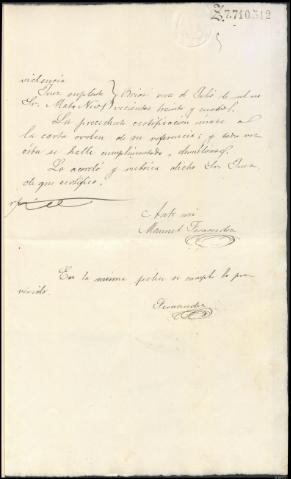 Z.7.740.312
videncia
Juez suplente } Briones de Julio de mil no
Sr. Mato Nieto } vecientos treinta y cuatro.
La precedente certificación únase a
la carta orden de su referencia; y toda vez
ésta se halla cumplimentada, devuélvase.
Lo acordó y rubrica dicho Sr. Juez
de que certifico.
Ante mi
Manuel Fernandez
En la misma fecha se cumple lo pro
veido.
Fernandez